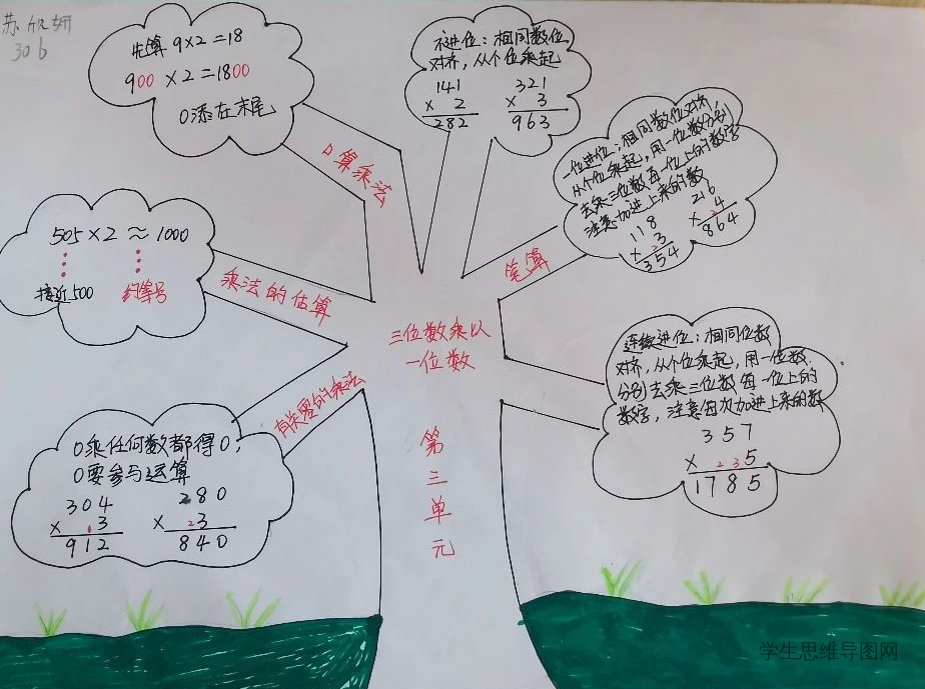 苏欣妍
306
先算 9×2=18
900×2=1800
0添在末尾
口算乘法
不进位：相同数位
对齐，从个位乘起
141
× 2
282
321
× 3
963
一位进位：相同数位对齐，
从个位乘起，用一位数分别
去乘三位数每一位上的数字
注意加进上来的数
118
× 23
354
216
× 24
864
笔算
505×2≈1000
接近500
约等号
乘法的估算
三位数乘以
一位数
连续进位：相同位数
对齐，从个位乘起，用一位数
分别去乘三位数每一位上的
数字，注意每次加进上来的数
357
× 235
1785
有关零的乘法
0乘任何数都得0，
0要参与运算
304
× 13
912
280
× 23
840
第
三
单
元
学生思维导图网